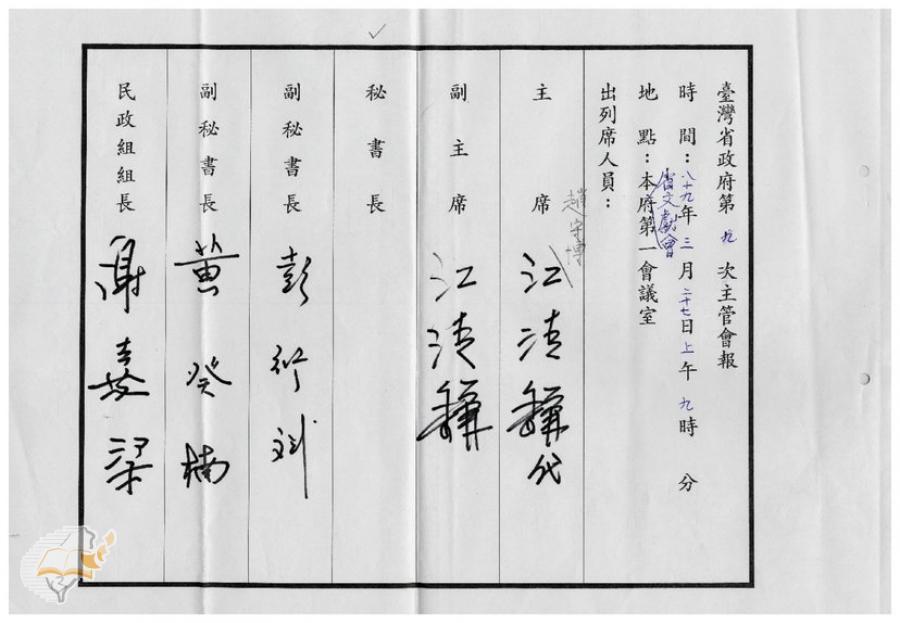 臺灣省政府第九次主管會報
時間：八十九年三月二十七日上午九時 分
地點：本府第一會議室
省文獻會
出列席人員：
主席 江清馦代
趙守博
副主席 江清馦
秘書長
副秘書長 彭
副秘書長 黃癸楠
民政組組長 謝嘉梁